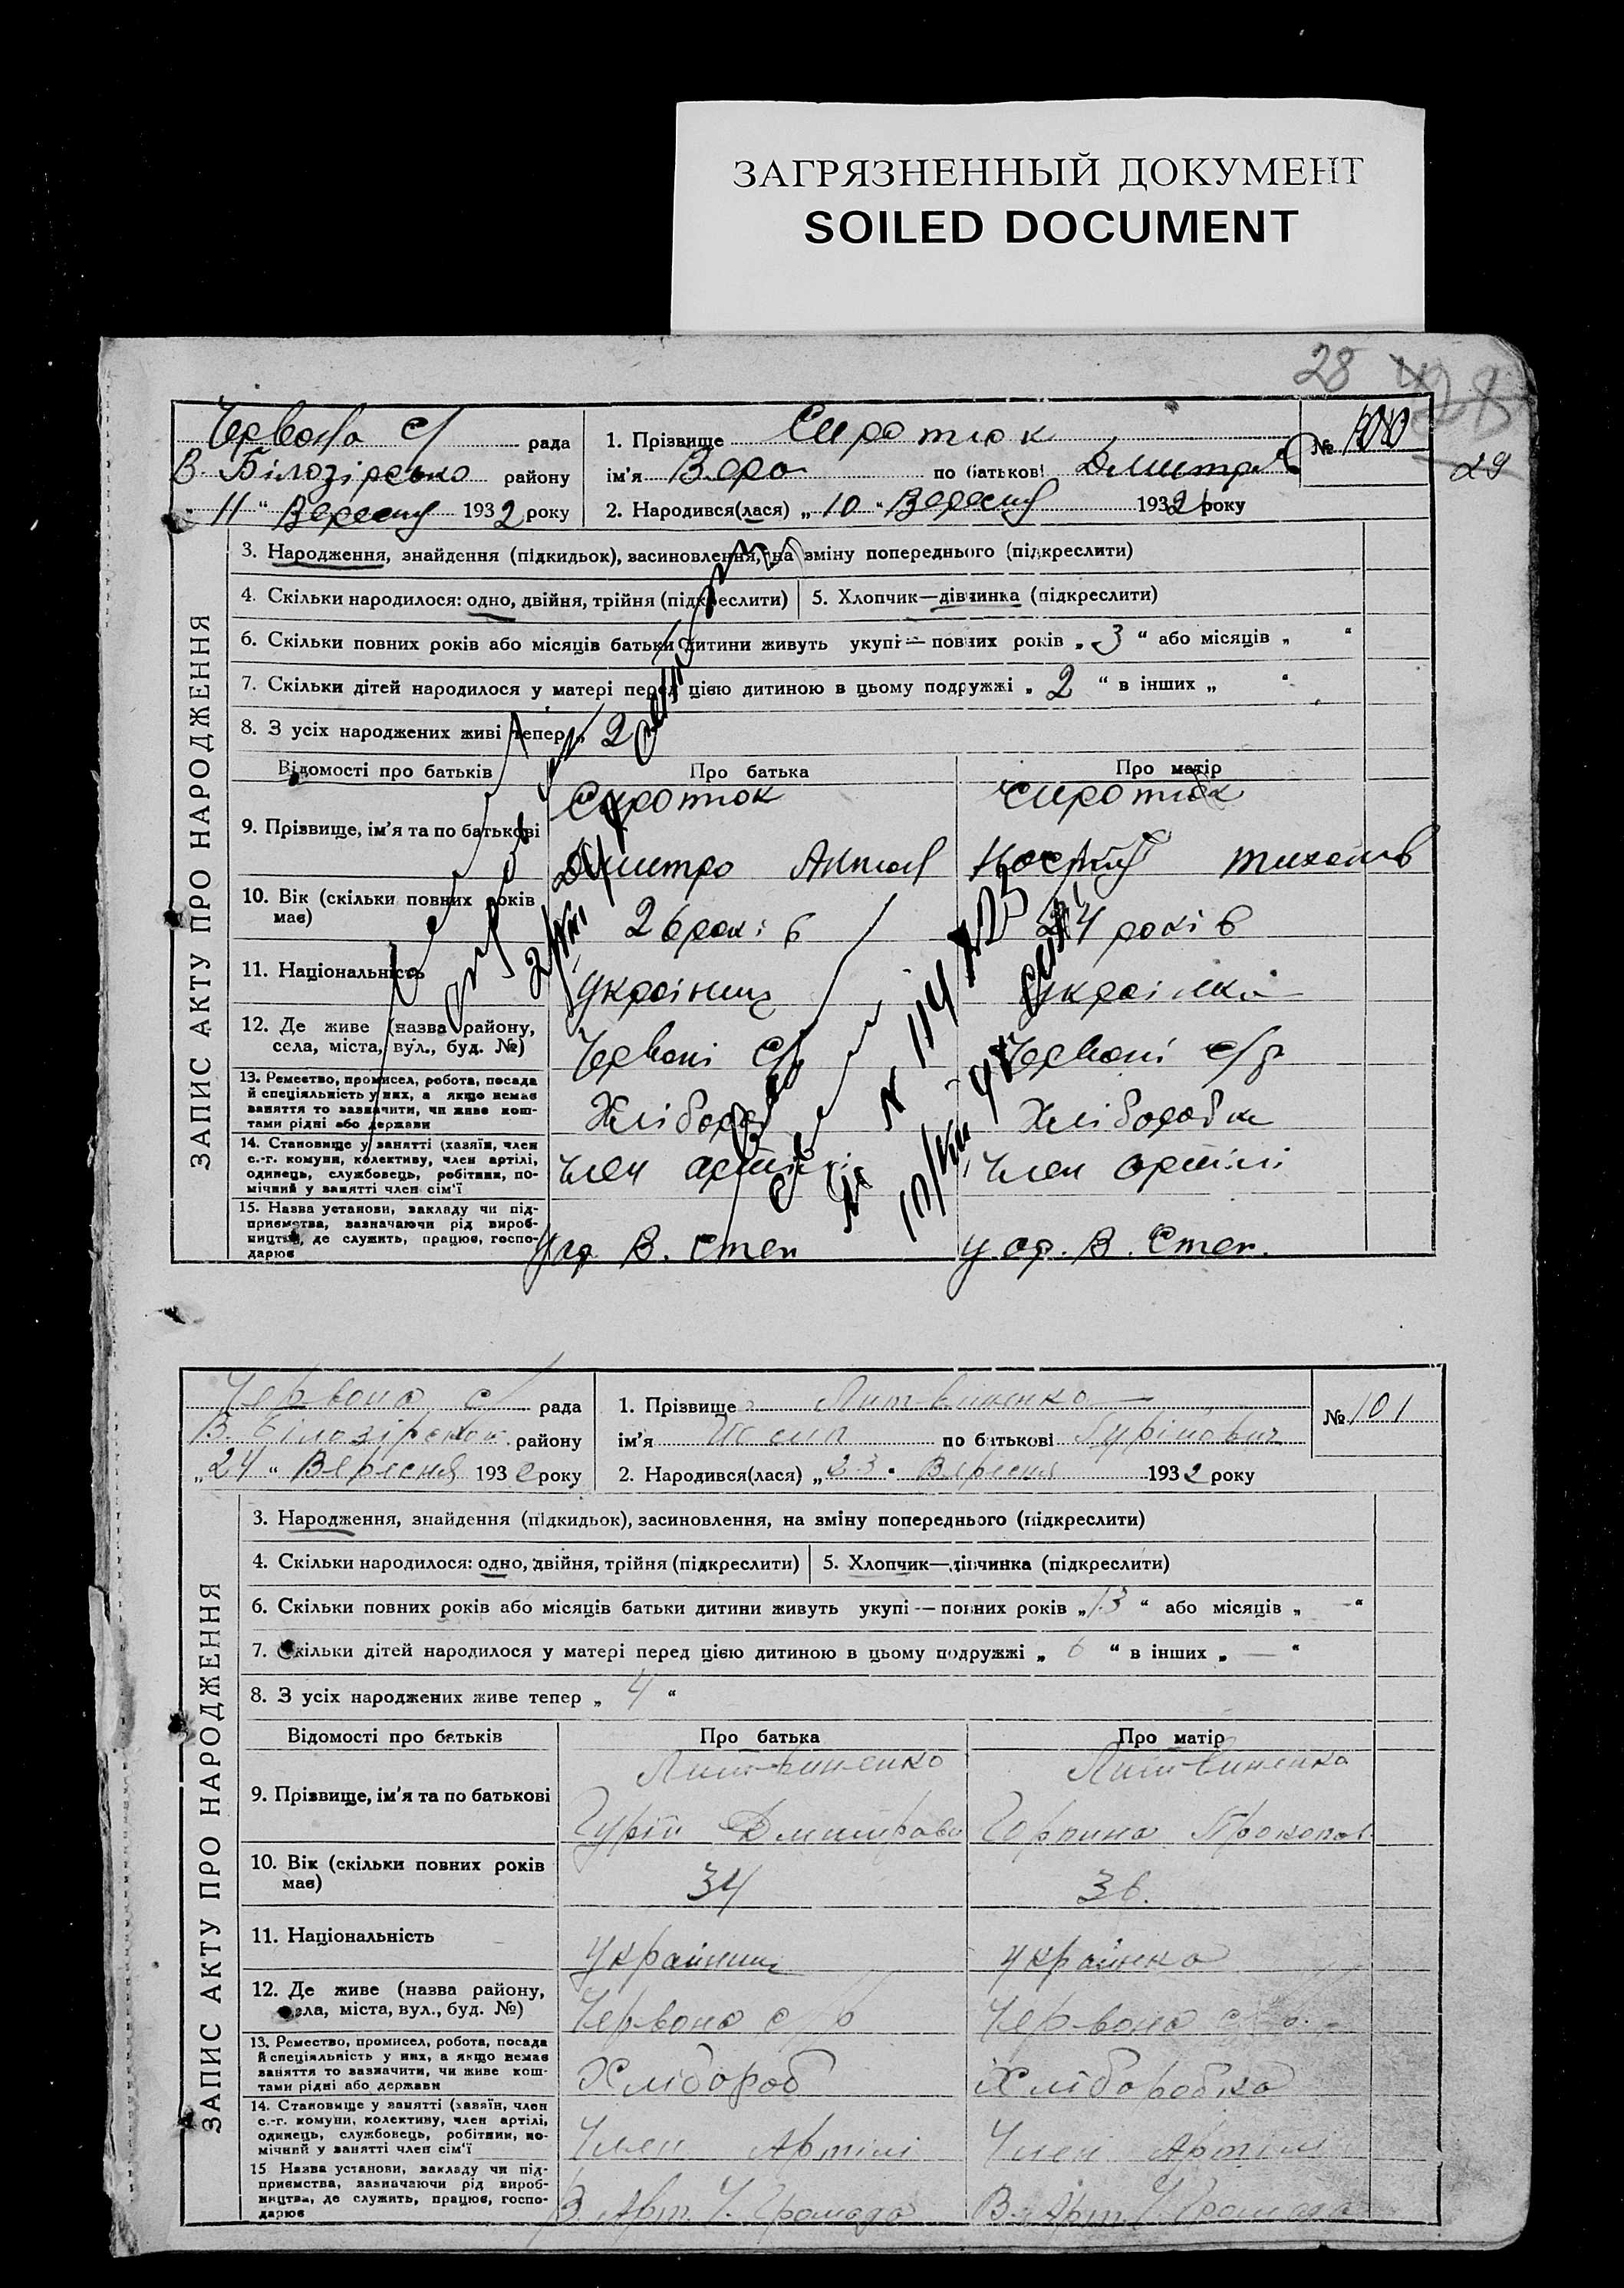 ЗАГРЯЗНЕННЫЙ ДОКУМЕНТ
SOILED DOCUMENT
28
29
Червона с/ рада
В Білозірсько району
11 " Вересня 1932 року
1. Прізвище Сиротюк
ім'я Вера по батькові Дмитрів
2. Народився(лася) „ 10 " Вересня 1932 року
№ 100
ЗАПИС АКТУ ПРО НАРОДЖЕННЯ
3. Народження, знайдення (підкидьок), васиновлення, на зміну попереднього (підкреслити)
4. Скільки народилося: одно, двійня, трійня (підкреслити) 5. Хлопчик—дівчинка (підкреслити)
6. Скільки повних років або місяців батьки дитини живуть укупі — повних років „ 3 " або місяців „ "
7. Скільки дітей народилося у матері перед цією дитиною в цьому подружжі „ 2 " в інших „ "
8. З усіх народжених живі тепер „ 2
Відомості про батьків Про батька Про матір
Сиротюк Сиротюк
9. Прізвище, ім'я та по батькові
Дмитро
10. Вік (скільки повних років має)
26 років 24 років
11. Національність
Українец Українка
12. Де живе (назва району, села, міста, вул., буд. №)
Червоні с/р Червоні с/р
13. Ремество, промисел, робота, посада
й спеціяльність у них, а якщо немає
заняття то зазначити, чи живе кош-
тами рідні або держави
Хлібороб Хлібородка
14. Становище у занятті (хазяїн, член
с.-г. комуни, колективу, член артілі,
одинець, службовець, робітник, по-
мічний у занятті член сім'ї
Член артілі Член артілі
15. Назва установи, закладу чи під-
приємства, зазначаючи рід вироб-
ництва, де служить, працює, госпо-
дарює
У ар. В. Степ У ар. В. Степ.
Червона с/ рада
В. Білозірської району
„ 24 " Вересня 1932 року
1. Прізвище Литвиненко
ім'я по батькові Гурійович
2. Народився(лася) „ 23 " Вересня 1932 року
№ 101
ЗАПИС АКТУ ПРО НАРОДЖЕННЯ
3. Народження, знайдення (підкидьок), засиновлення, на зміну попереднього (підкреслити)
4. Скільки народилося: одно, двійня, трійня (підкреслити) 5. Хлопчик—дівчинка (підкреслити)
6. Скільки повних років або місяців батьки дитини живуть укупі — повних років „ 13 " або місяців „ — "
7. Скільки дітей народилося у матері перед цією дитиною в цьому подружжі „ 6 " в інших „ — "
8. З усіх народжених живе тепер „ 4 "
Відомості про батьків Про батька Про матір
Литвиненко Литвиненко
9. Прізвище, ім'я та по батькові
Гурій Дмитрови Горпина Прокопов
10. Вік (скільки повних років має)
34 36.
11. Національність
Українец Українка
12. Де живе (назва району, села, міста, вул., буд. №)
Червона с/р Червона с/р.
13. Ремество, промисел, робота, посада
й спеціяльність у них, а якщо немає
заняття то зазначити, чи живе кош-
тами рідні або держави
Хлібороб Хліборобка
14. Становище у занятті (хазяїн, член
с.-г. комуни, колективу, член артілі,
одинець, службовець, робітник, по-
мічний у занятті член сім'ї
Член Артілі Член Артілі
15 Назва установи, закладу чи під-
приємства, зазначаючи рід вироб-
ництва, де служить, працює, госпо-
дарює
В Арт. Ч. Громада В. Арт. Ч. Громада